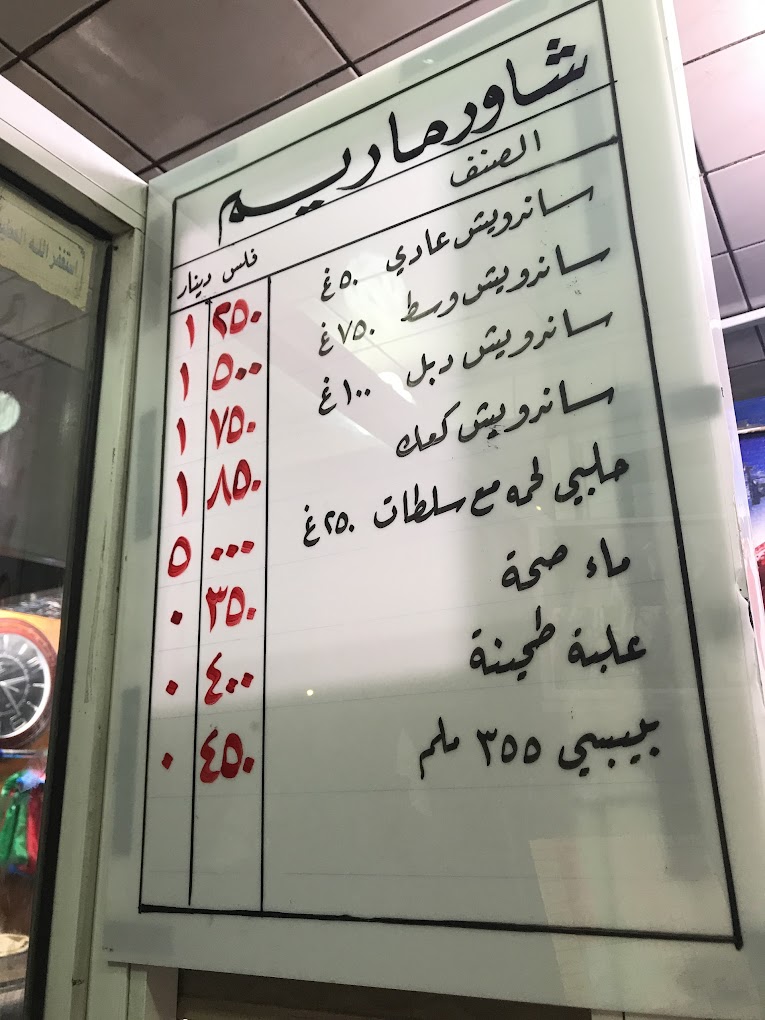 شاورما ريم
الصنف فلس دينار
ساندويش عادي ٥٠غ ٢٥٠ ١
ساندويش وسط ٧٥٠غ ٥٠٠ ١
ساندويش دبل ١٠٠غ ٧٥٠ ١
ساندويش كعك ٨٥٠ ١
حلبي لحمه مع سلطات ٢٥٠غ ٠٠٠ ٥
ماء صحة ٣٥٠ ٠
علبة طحينة ٤٠٠ ٠
بيبسي ٣٥٥ ملم ٤٥٠ ٠
استغفر الله العظيم